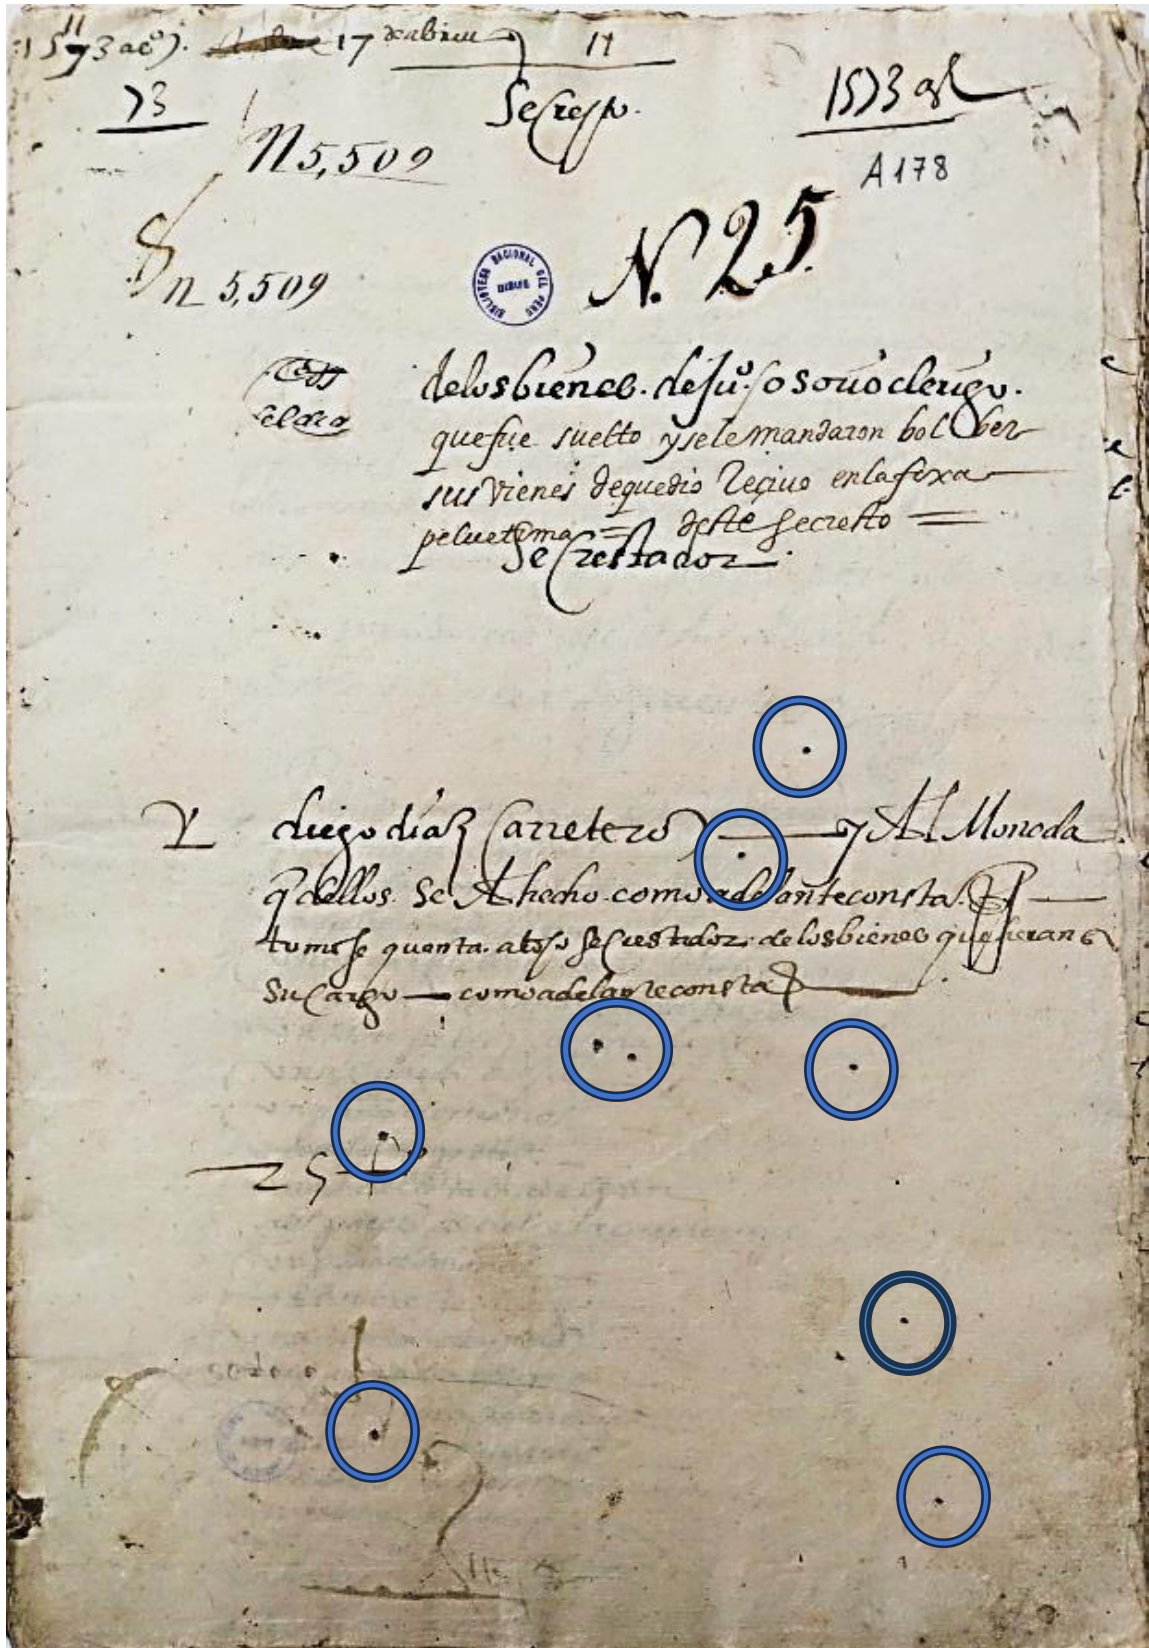 1573 17 11
73 Secresto. 1573
N 5,509
A 178
N. 25
n 5,509
BIBLIOTECA NACIONAL DEL PERU
de los bienes. de Ju.º osorio clerigo.
que fue suelto y se le mandaron bolber
sus vienes de que dio Reciuo en la foxa
deste secresto
Secrestador.
diego díaz Carretero y Al Moneda
q dellos. Se A hecho. como adelante consta.
tomose quenta. al dho Secrestador. de los bienes que fueran a
Su Cargo como adelante consta